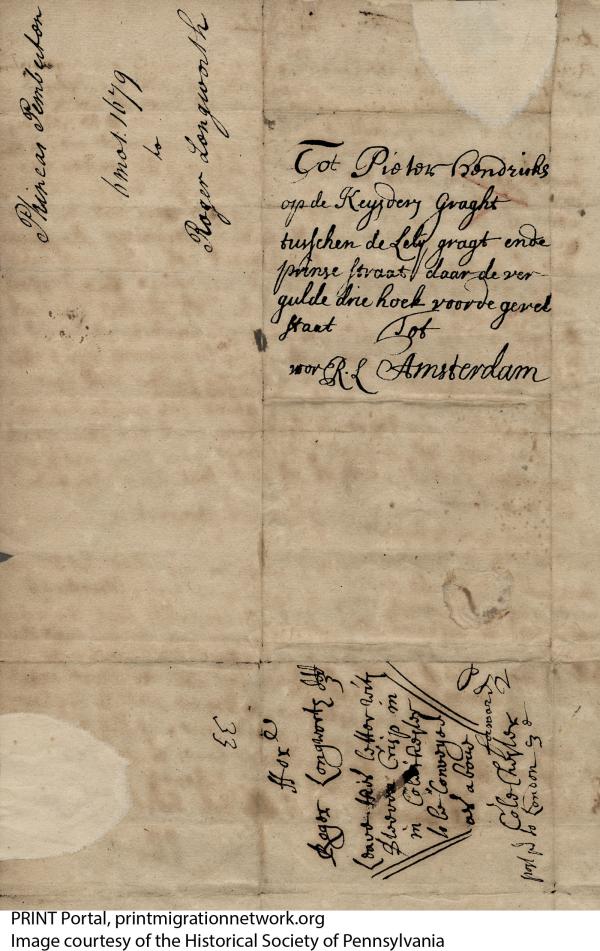 Phineas Pemberton
6mo1.1679
to
Roger Longworth
Tot Pieter Hendricks
op de Keysders Graght
tusschen de Lely gragt ende
prinse straat, daar de ver-
gulde drie hoek voor de gevel
staat Tot
vor R. L Amsterdam
33
ffor
Roger Longworth
Leave this letter with
Steeven Crisp in
in Colchester
to be Conveyed
as above
forward
Colchester
to London
PRINT Portal, printmigrationnetwork.org
Image courtesy of the Historical Society of Pennsylvania